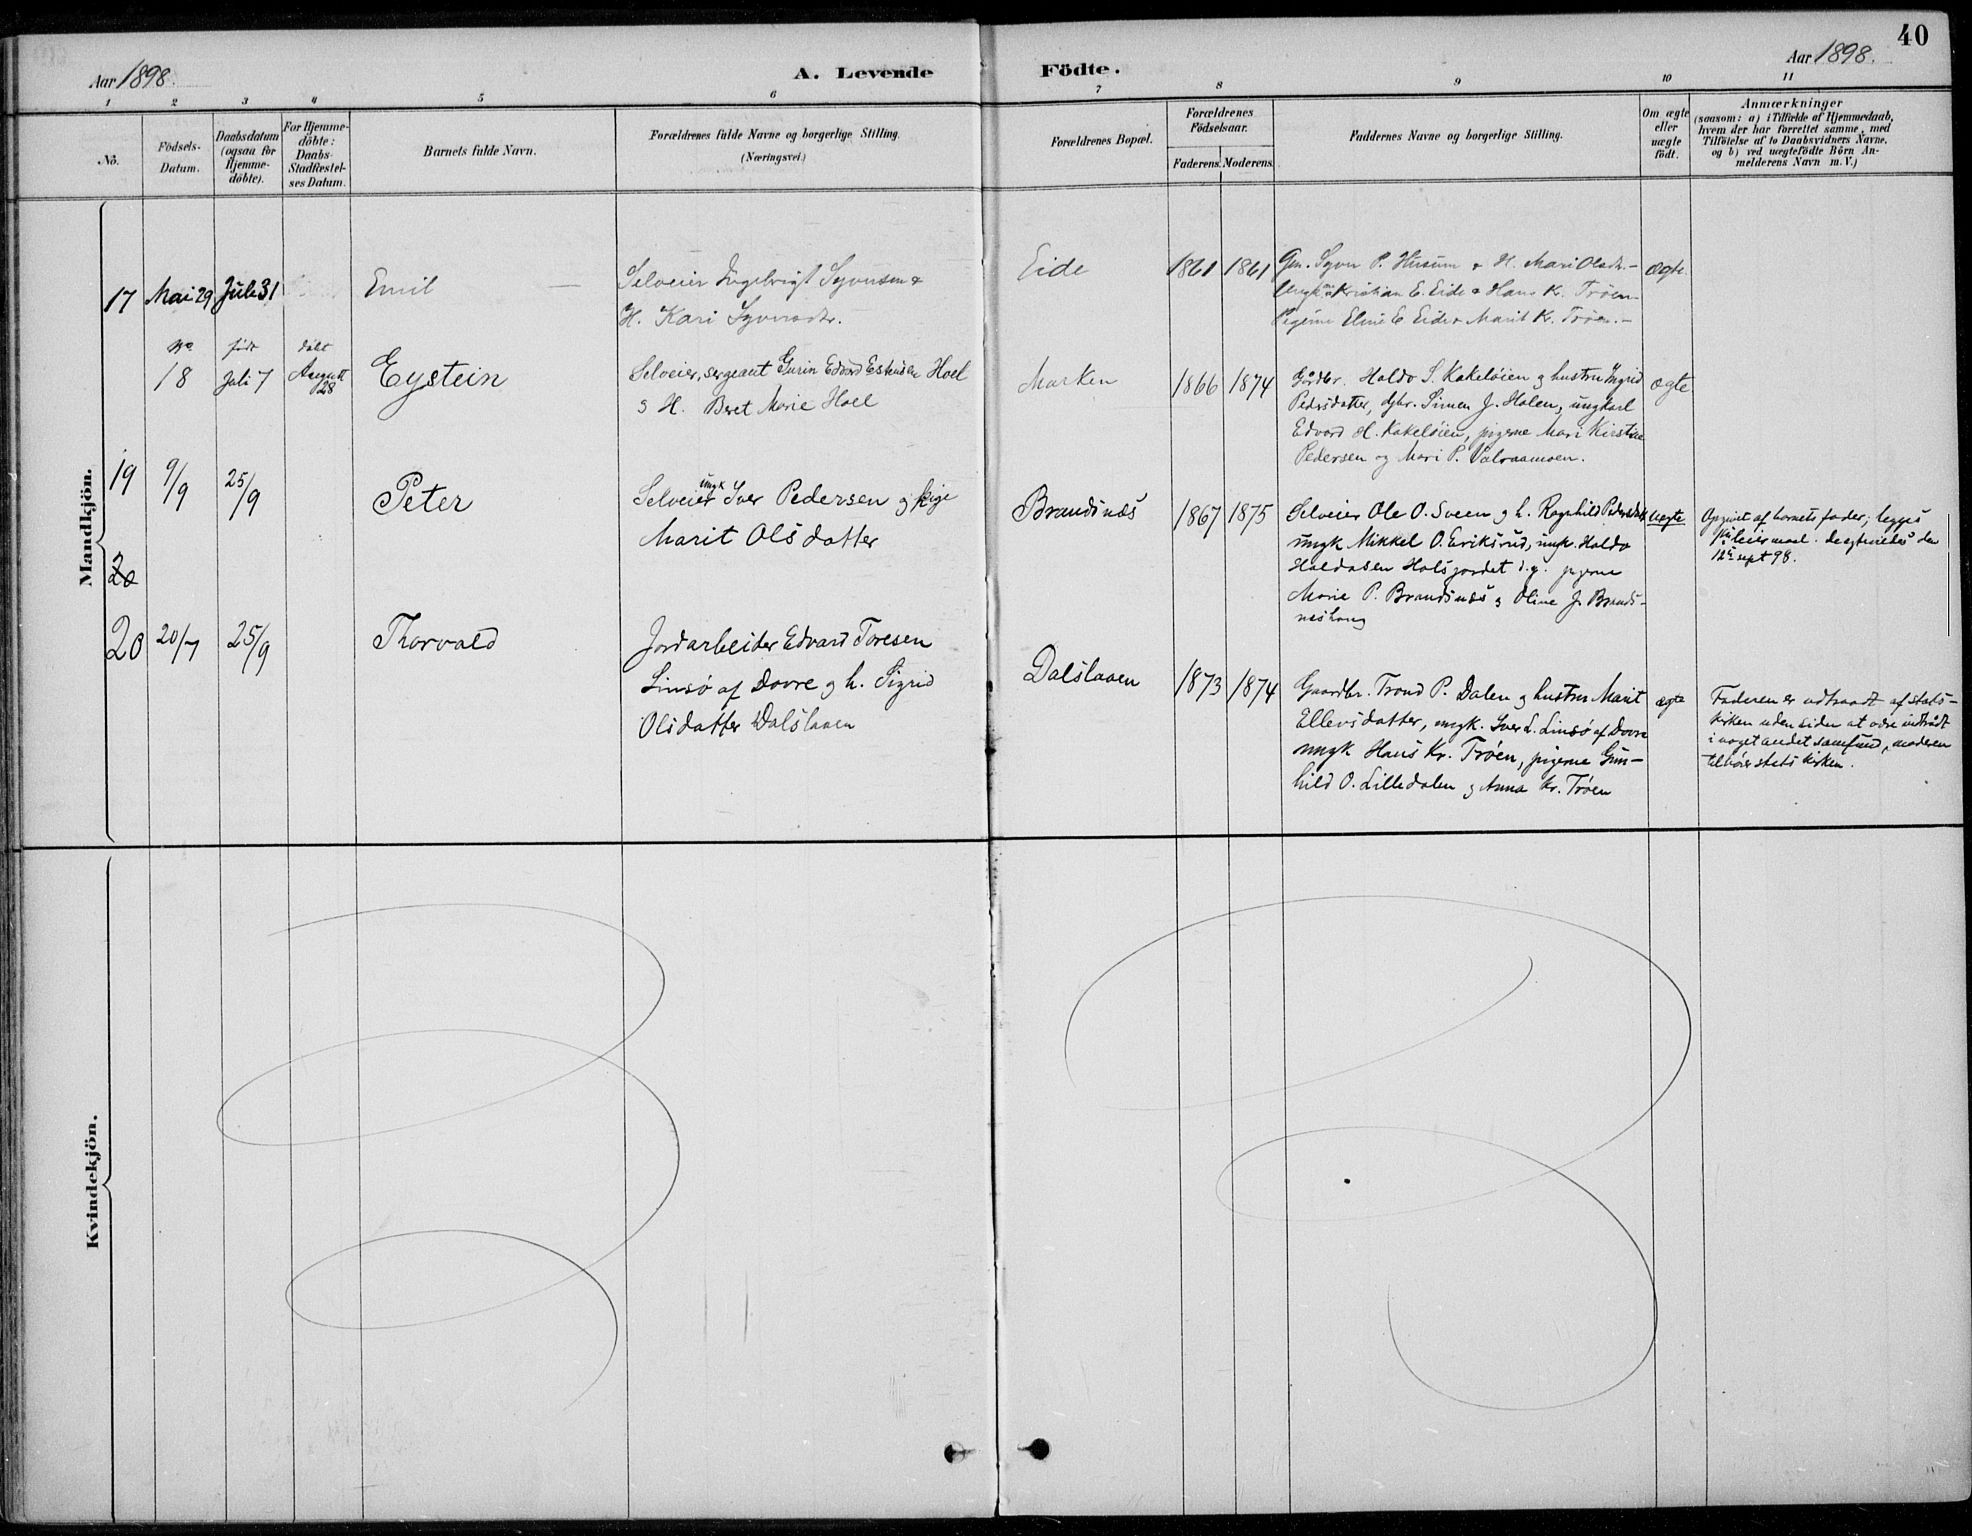 40
Aar 1898.
A. Levende Födte.
Aar 1898.
1 2 3 4 5 6 7 8 9 10 11
No.
Födsels-
Datum.
Daabsdatum
(ogsaa for
Hjemme-
döbte).
For Hjemme-
döbte:
Daabs-
Stadfestel-
ses Datum.
Barnets fulde Navn.
Forældrenes fulde Navne og borgerlige Stilling.
(Næringsvei.)
Forældrenes Bopæl.
Forældrenes
Födselsaar.
Faderens. Moderens.
Faddernes Navne og borgerlige Stilling.
Om ægte
eller
uægte
født.
Anmærkninger
(saasom: a) i Tilfælde af Hjemmedaab,
hvem der har forrettet samme, med
Tilföielse af to Daabsvidners Navne,
og b) ved uægtefödte Börn An-
melderens Navn m. V.)
Mandkjön.
17
Mai 29
Juli 31
Emil
Selveier Ingebrigt Syversen &
H. Kari Syversdr.
Eide
1861
1861
Syver P. Husum & H. Mari Olsdr.-
Kristian E. Eide & Hans Kr. Trøen-
Pigerne Eline E Eide & Marit Kr. Trøen.-
ægte
No
født
døbt
18
Juli 7
August
28
Eystein
Selveier, sergeant Gurin Edvard Hoel
& H. Beret Marie Hoel
Marken
1866
1874
Gårdbr. Haldo S. Kakeløien og hustru Ingrid
Pedersdatter, Simen J. Holen, ungkarl
Edvard H. Kakeløien, pigerne Mari Kirstine
Pedersen og Mari P. Valraamoen.
ægte
19
9/9
25/9
Peter
Selveier ungk Iver Pedersen og pige
Marit Olsdatter
Brandsnæs
1867
1875
Selveier Ole O. Sveen og h. Ragnhild Pedersdatt
ungk Mikkel O. Eriksrud, ungk. Haldo
Haldosen Holsjordet d.y. pigerne
Marie P. Brandsnæs og Oline J. Brands-
neshaug
uægte
Opgivet af barnets fader;
leiermaal.
12te sept 98.
20
20
20/7
25/9
Thorvald
Jordarbeider Edvard Toresen
Linsø af Dovre og h. Sigrid
Olsdatter Dalslaaen
Dalslaaen
1873
1874
Gaardbr. Trond P. Dalen og hustru Marit
Ellevsdatter, ungk. Iver L. Linsø af Dovre
ungk Hans Kr. Trøen, pigerne Gun-
hild O. Lilledalen og Anna Kr. Trøen
ægte
Faderen er udtraadt af stats-
kirken uden siden at være indtrådt
i noget andet samfund, moderen
tilhører statskirken.
Kvindekjön.